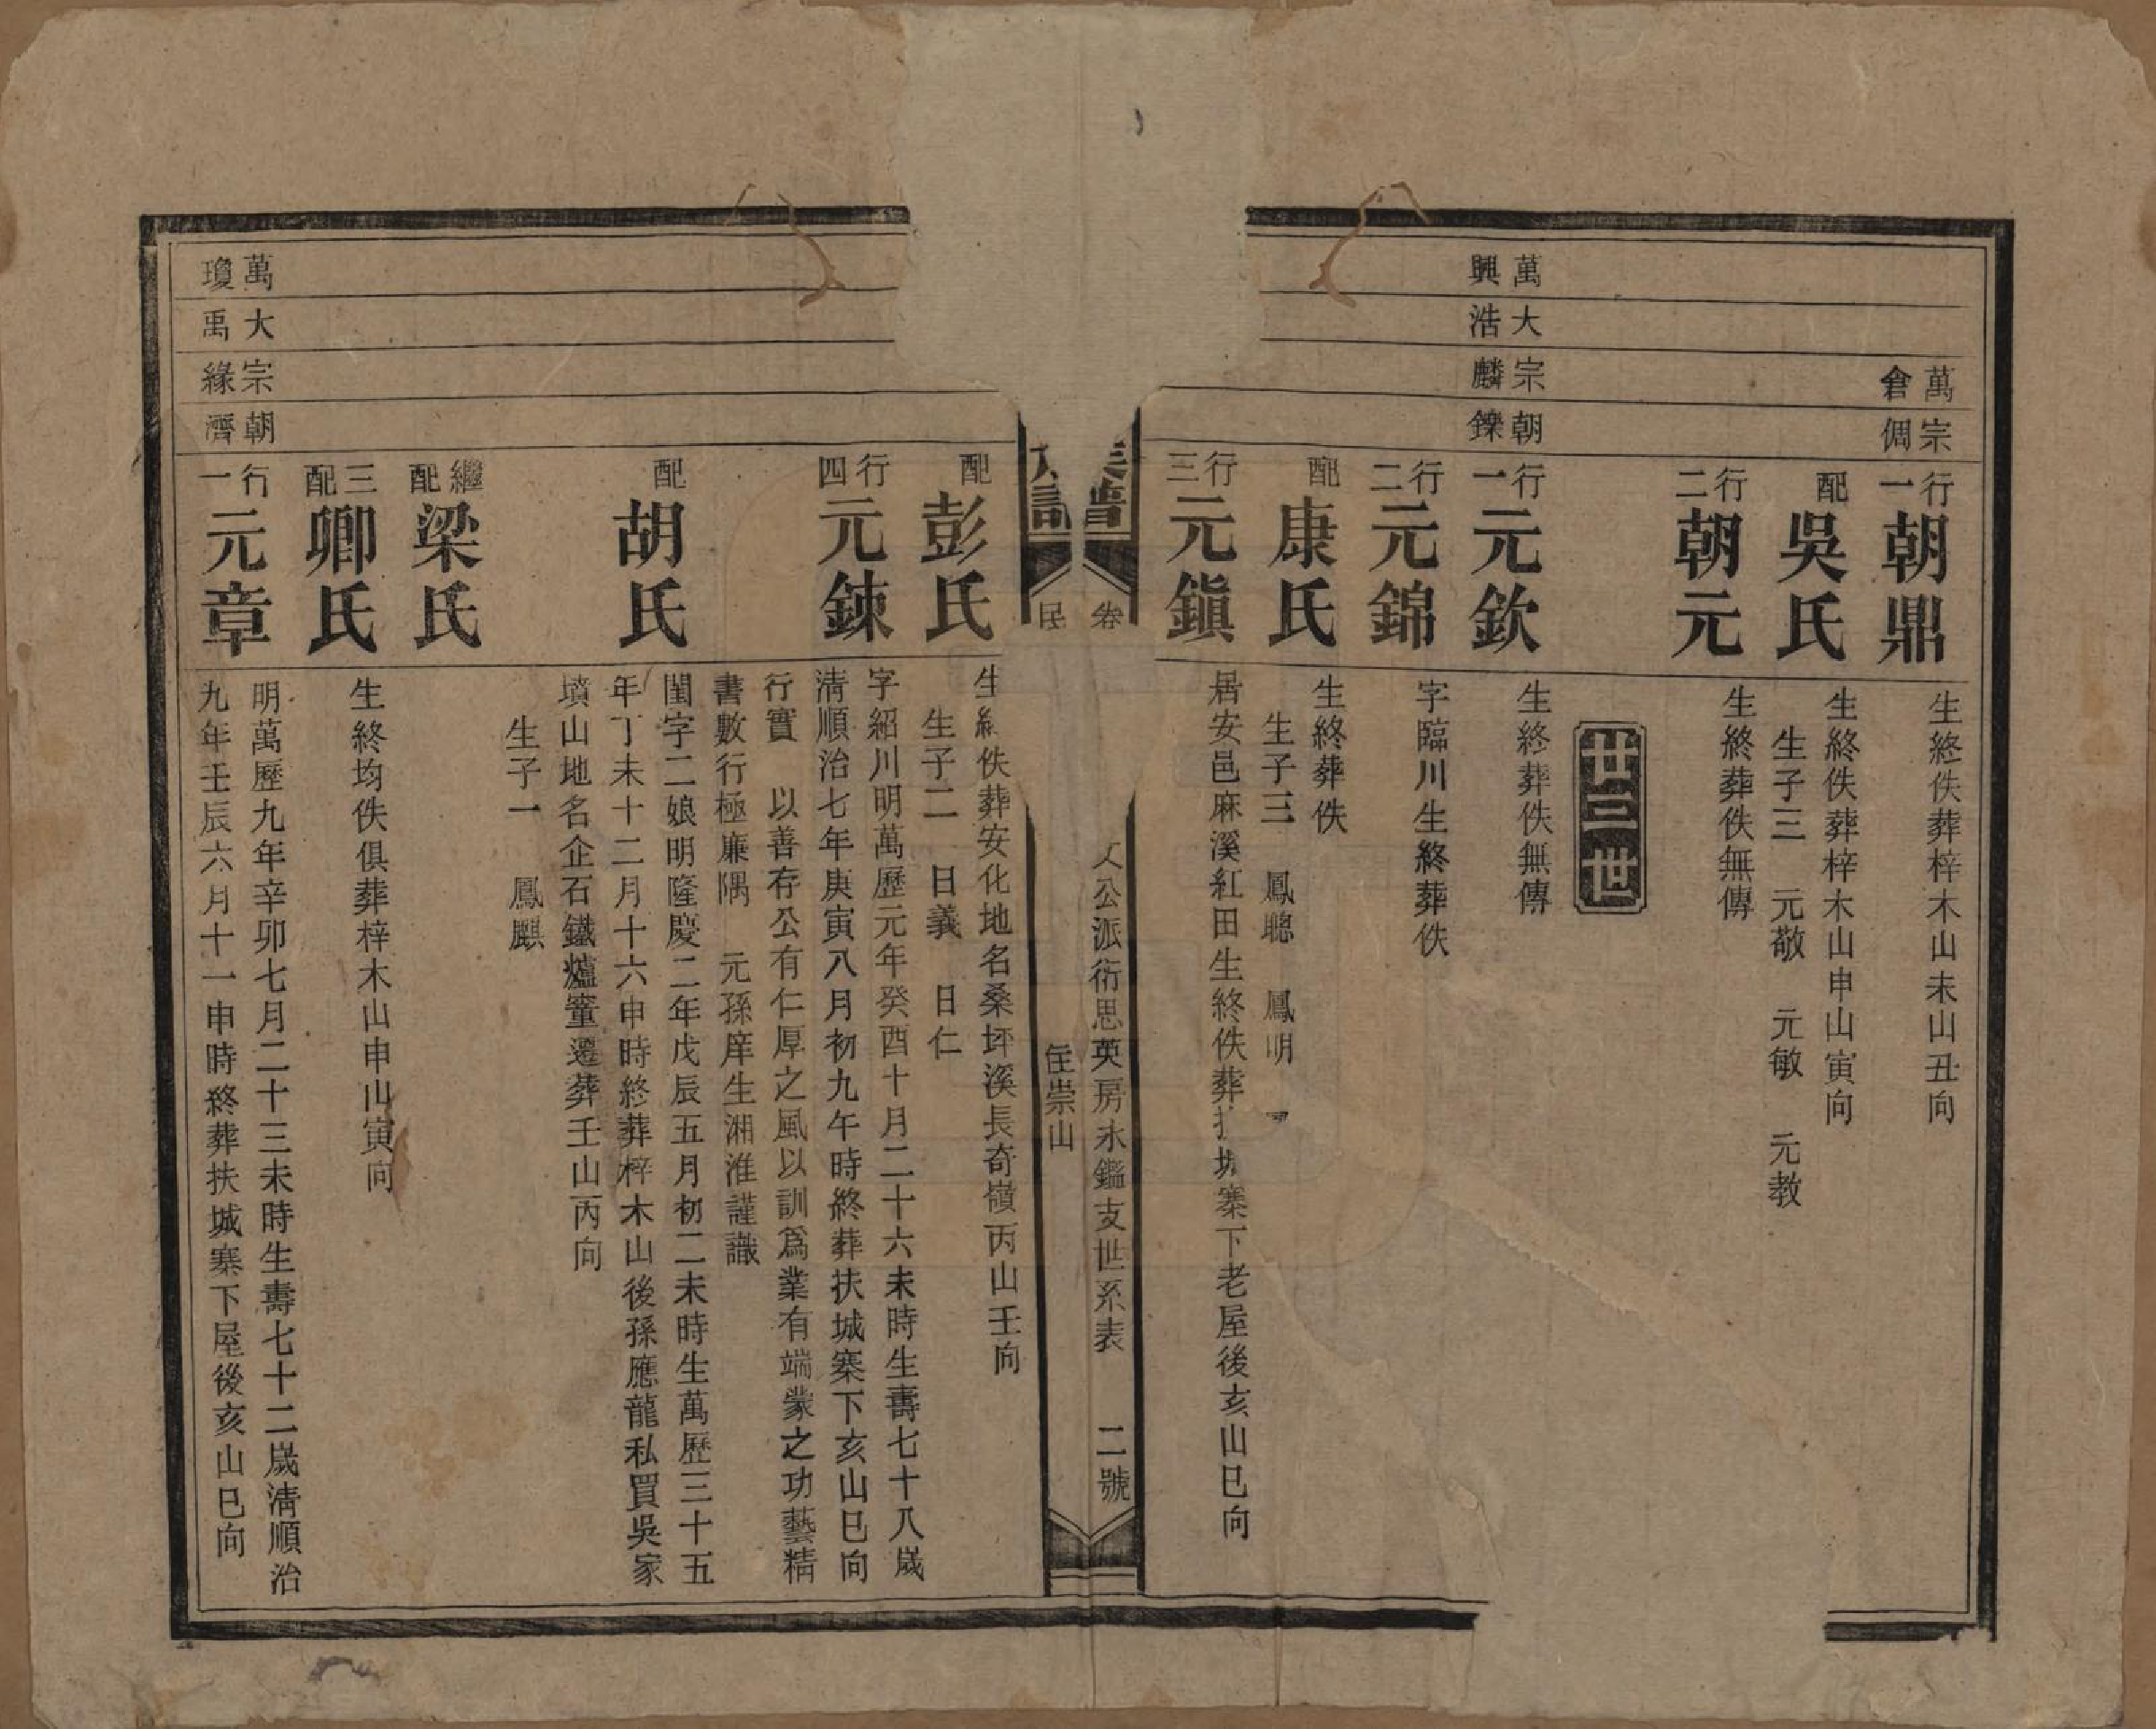 萬倉
宗倜
行一 朝鼎
生終佚葬梓木山未山丑向
配 吳氏
生終佚葬梓木山申山寅向
生子三 元敬 元敏 元教
行二 朝元
生終葬佚無傳
廿三世
萬興
大浩
宗麟
朝鑠
行一 元欽
生終葬佚無傳
行二 元錦
字臨川生終葬佚
配 康氏
生終葬佚
生子三 鳳聰 鳳明
行三 元鎭
居安邑麻溪紅田生終佚葬扶城寨下老屋後亥山巳向
族譜
卷
文公派衍思英房永鑑支世系表 二號
民
住崇山
配 彭氏
生終佚葬安化地名桑坪溪長奇嶺丙山壬向
生子二 日義 日仁
行四 元鍊
字紹川明萬歷元年癸酉十月二十六未時生壽七十八歲
淸順治七年庚寅八月初九午時終葬扶城寨下亥山巳向
行實 以善存公有仁厚之風以訓爲業有端蒙之功藝精
書數行極廉隅 元孫庠生湘淮謹識
配 胡氏
閨字二娘明隆慶二年戊辰五月初二未時生萬歷三十五
年丁未十二月十六申時終葬梓木山後孫應龍私買吳家
墳山地名企石鐵爐壟遷葬壬山丙向
生子一 鳳麒
繼配 梁氏
三配 卿氏
生終均佚俱葬梓木山申山寅向
萬瓊
大禹
宗緣
朝濟
行一 元章
明萬歷九年辛卯七月二十三未時生壽七十二歲淸順治
九年壬辰六月十一申時終葬扶城寨下屋後亥山巳向